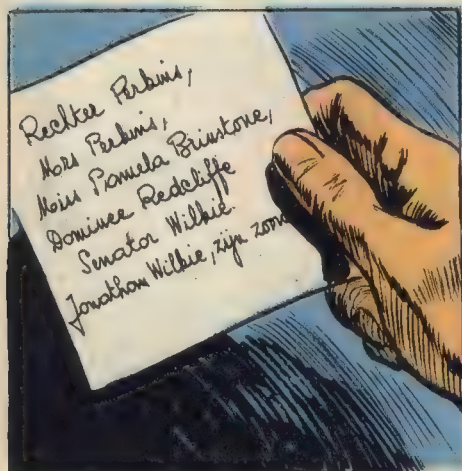 Rechter Perkins,
Mrs Perkins,
Miss Pamela Brinstone,
Dominee Redcliffe
Senator Wilkie.
Jonathan Wilkie, zijn zoon